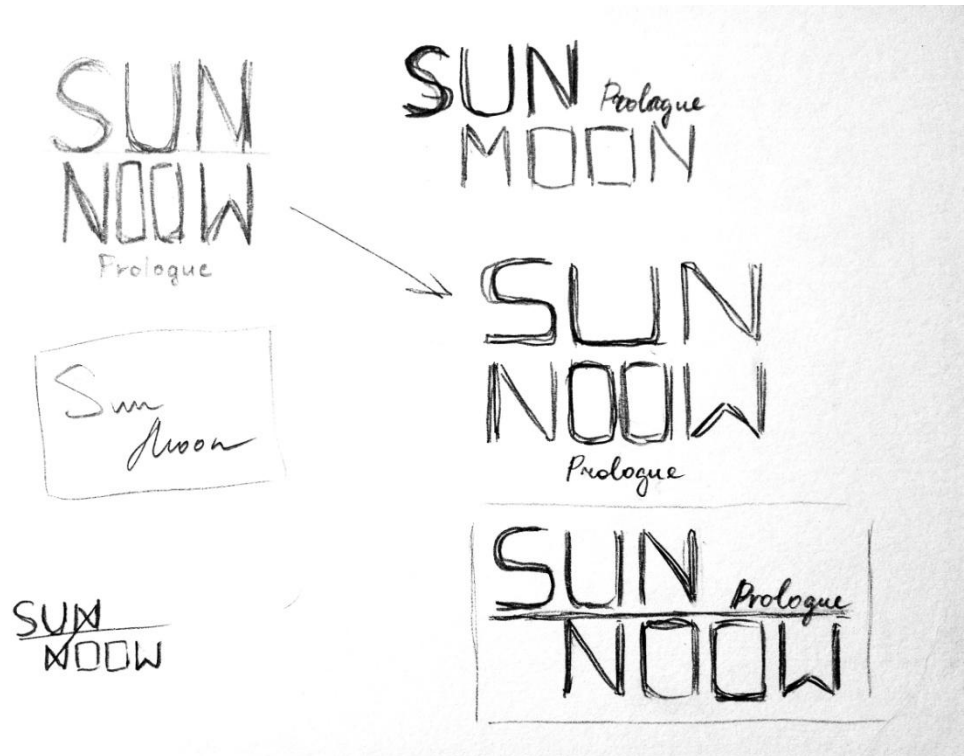 SUN
NOOW
Prologue
Sun
Moon
SUN
NOOW
SUN
Prologue
MOON
SUN
NOOW
Prologue
SUN
Prologue
NOOW